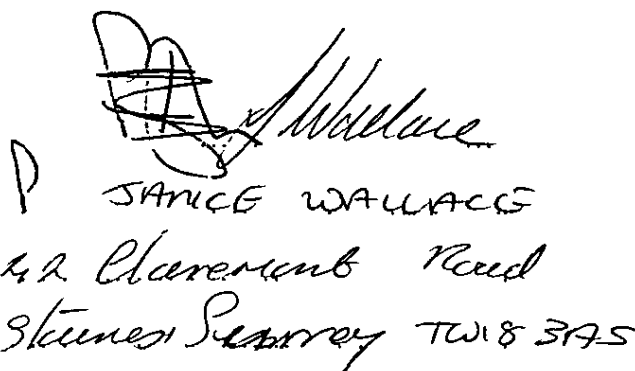 J Wallace
P JANICE WALLACE
42 Claremont Road
Staines Surrey TW18 3AS